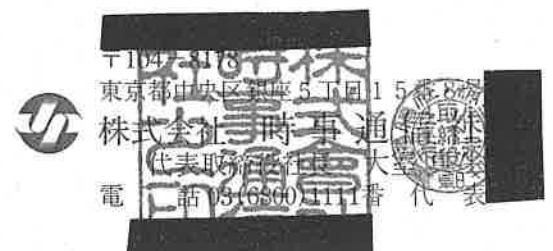 〒104-8178
東京都中央区銀座5丁目15番8号
株式会社 時事通信社
代表取締役社長 大室
電 話 03(6800)1111番 代 表